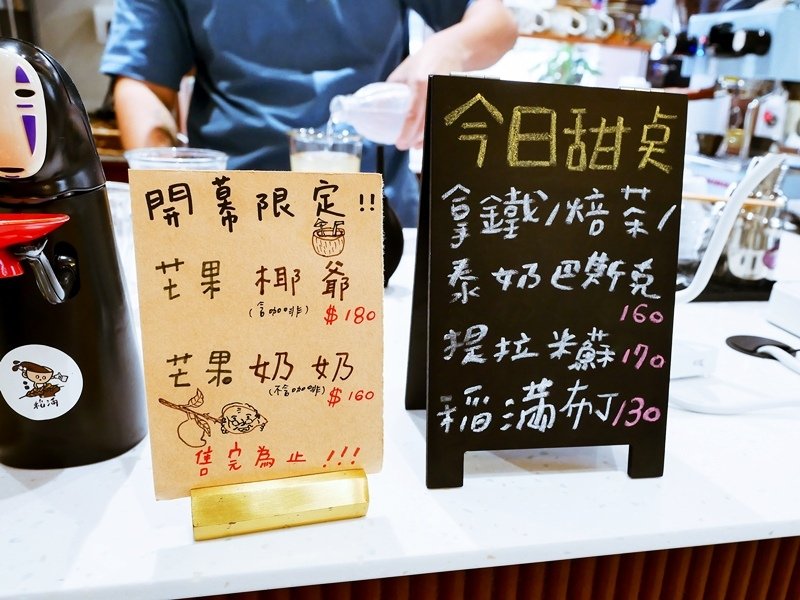 開幕限定!!
芒果椰爺
(含咖啡) $180
芒果奶奶
(不含咖啡) $160
售完為止!!!
今日甜点
拿鐵/焙茶/
泰奶巴斯克
160
提拉米蘇170
稻滿布丁130
稻滿